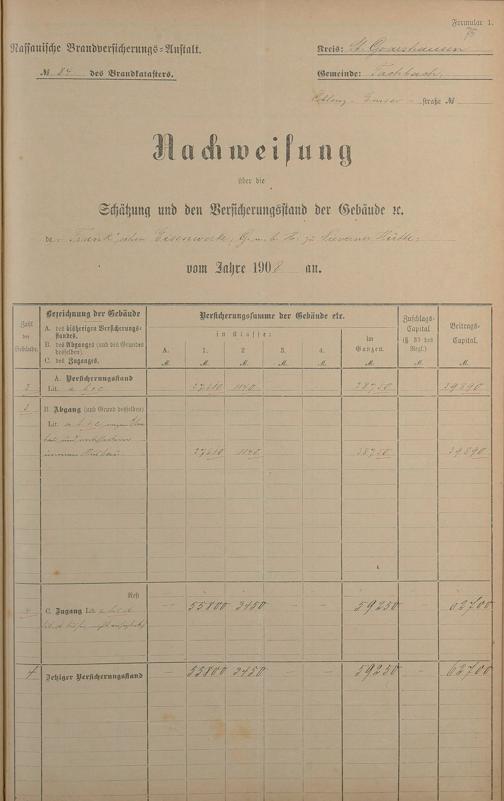 Formular 1.
75
Nassauische Brandversicherungs-Anstalt.
Kreis: St. Goarshausen
№ 84 des Brandkatasters.
Gemeinde: Fachbach.
Koblenz-Emser-straße №
Nachweisung
über die
Schätzung und den Versicherungsstand der Gebäude ꝛc.
der Frank'schen Eisenwerke, G.m.b.H. zu Nieverner Hütte
vom Jahre 1908 an.
Zahl der Gebäude.
Bezeichnung der Gebäude
A. des bisherigen Versicherungs-
standes.
B. des Abganges (und des Grundes
desselben).
C. des Zuganges.
Versicherungssumme der Gebäude etc.
in Klasse:
A. 1. 2 3. 4.
im
Ganzen.
Zuschlags-
Capital
(§ 35 des
Regl.)
Beitrags-
Capital.
M. M. M. M. M. M. M. M.
A. Versicherungsstand
3 Lit. a b c 27610 1140 28750 29890
3 B Abgang (und Grund desselben)
Lit. a b c wegen
27610 1140 28750 29890
Rest
4 C. Zugang Lit. a b c d — 55800 3450 — — 59250 — 62700
4 Jetziger Versicherungsstand — 55800 3450 — — 59250 — 62700